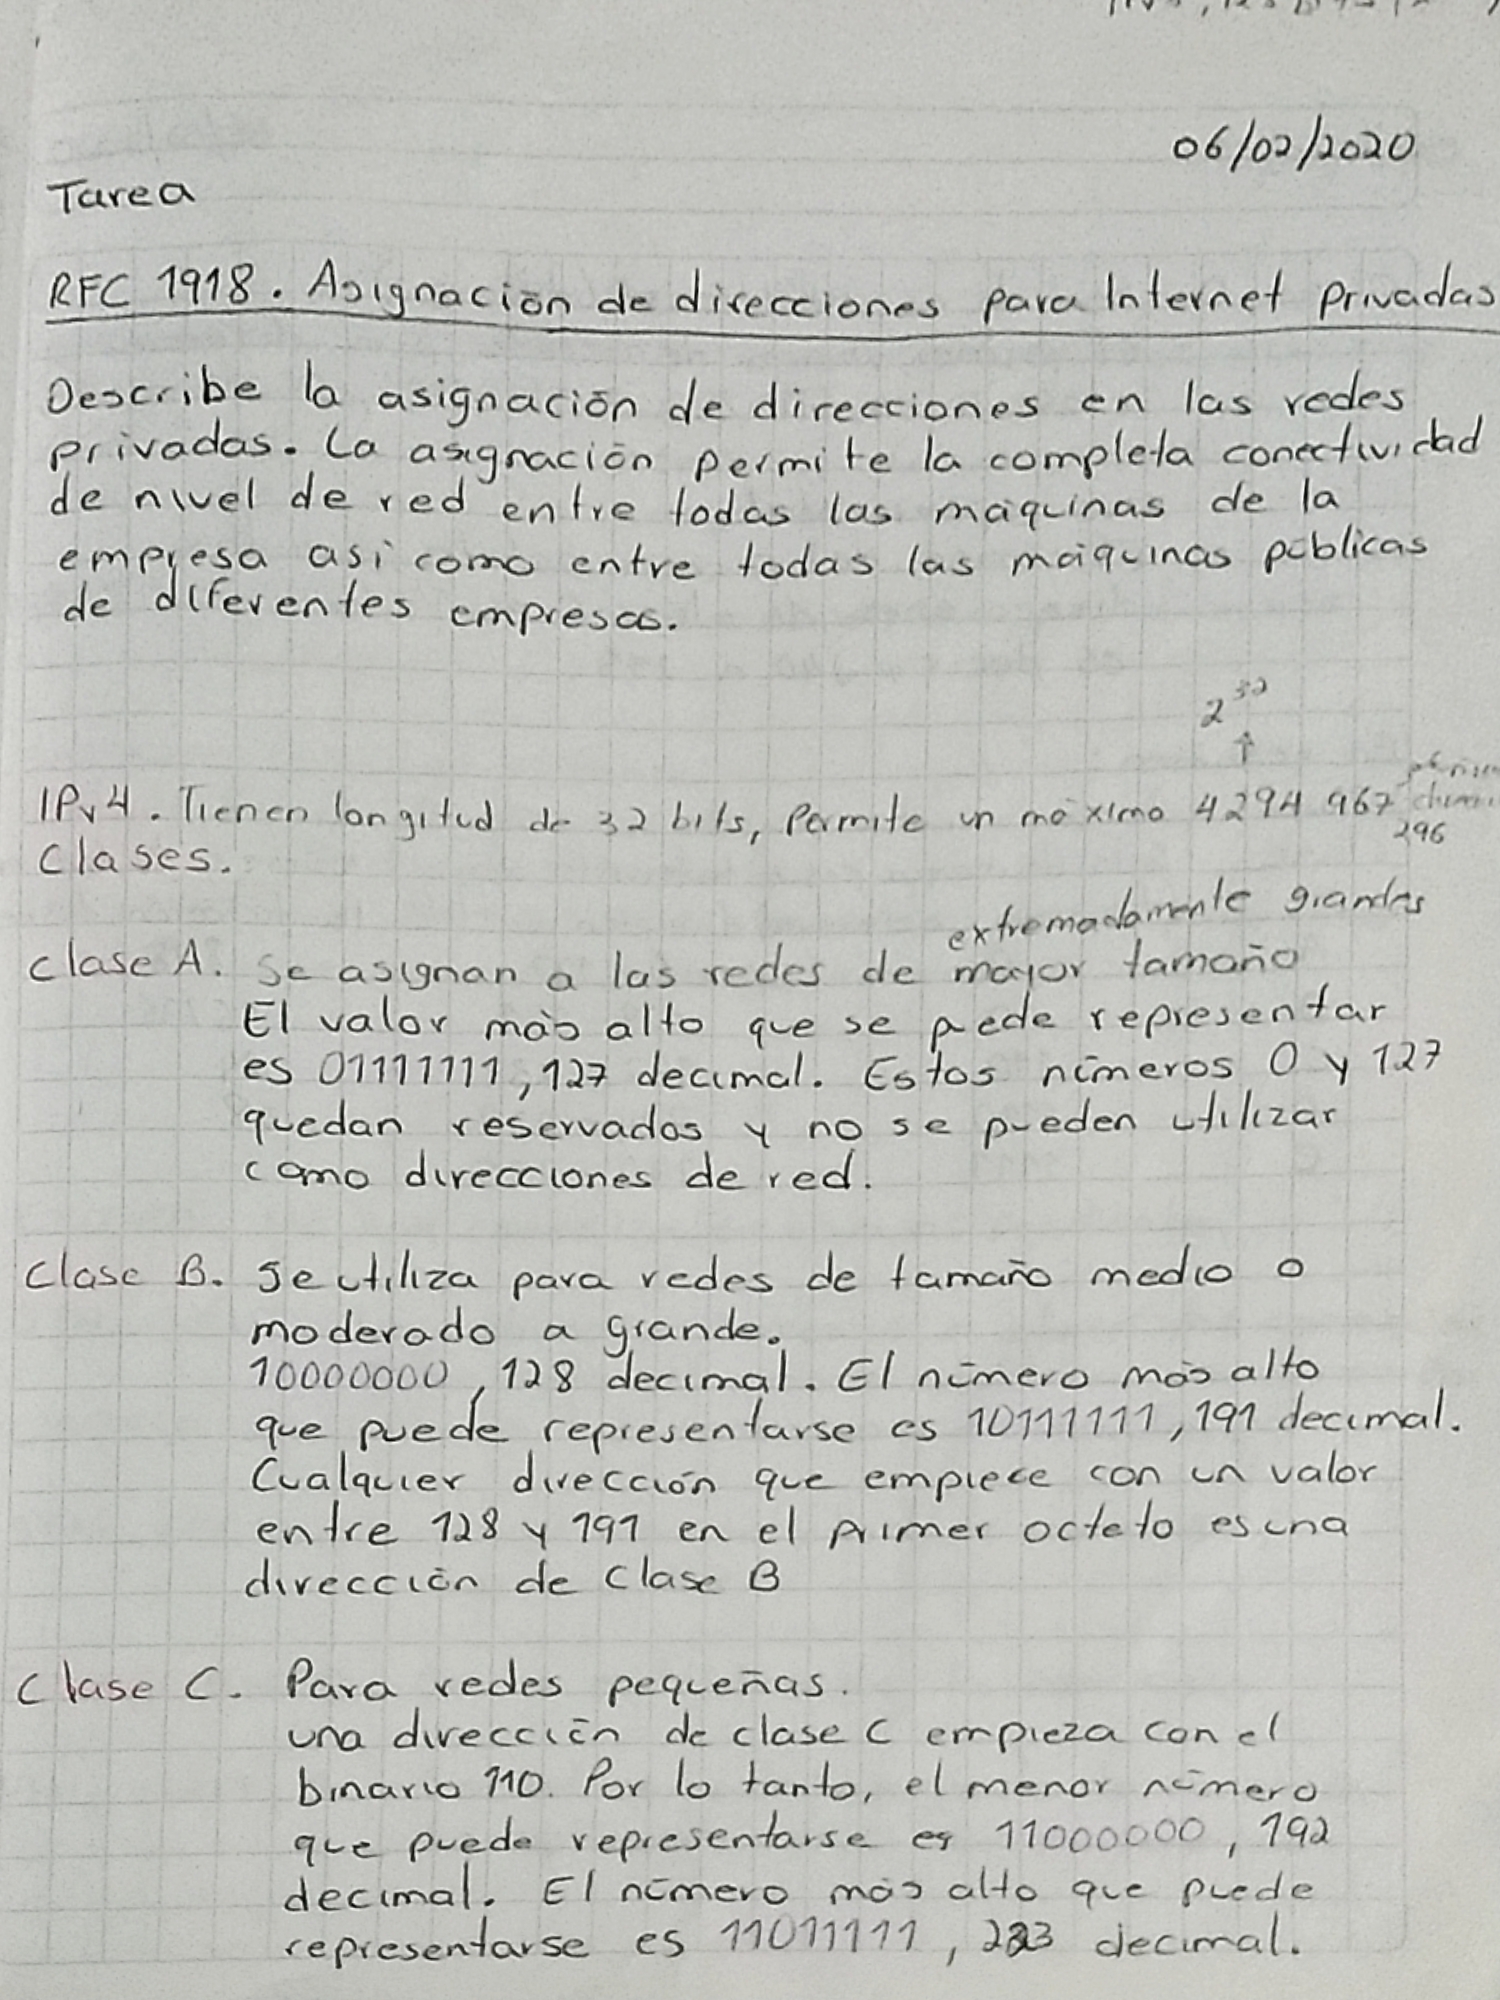 06/02/2020
Tarea
RFC 1918. Asignación de direcciones para Internet Privadas
Describe la asignación de direcciones en las redes
privadas. La asignación permite la completa conectividad
de nivel de red entre todas las máquinas de la
empresa así como entre todas las máquinas públicas
de diferentes empresas.
2³²
↑
IPv4. Tienen longitud de 32 bits, Permite un máximo 4294 967
296
Clases.
extremadamente grandes
Clase A. Se asignan a las redes de mayor tamaño
El valor más alto que se puede representar
es 01111111, 127 decimal. Estos números 0 y 127
quedan reservados y no se pueden utilizar
como direcciones de red.
Clase B. Se utiliza para redes de tamaño medio o
moderado a grande.
10000000, 128 decimal. El número más alto
que puede representarse es 10111111, 191 decimal.
Cualquier dirección que empiece con un valor
entre 128 y 191 en el primer octeto es una
dirección de Clase B
Clase C. Para redes pequeñas.
una dirección de clase C empieza con el
binario 110. Por lo tanto, el menor número
que puede representarse es 11000000, 192
decimal. El número más alto que puede
representarse es 11011111, 223 decimal.